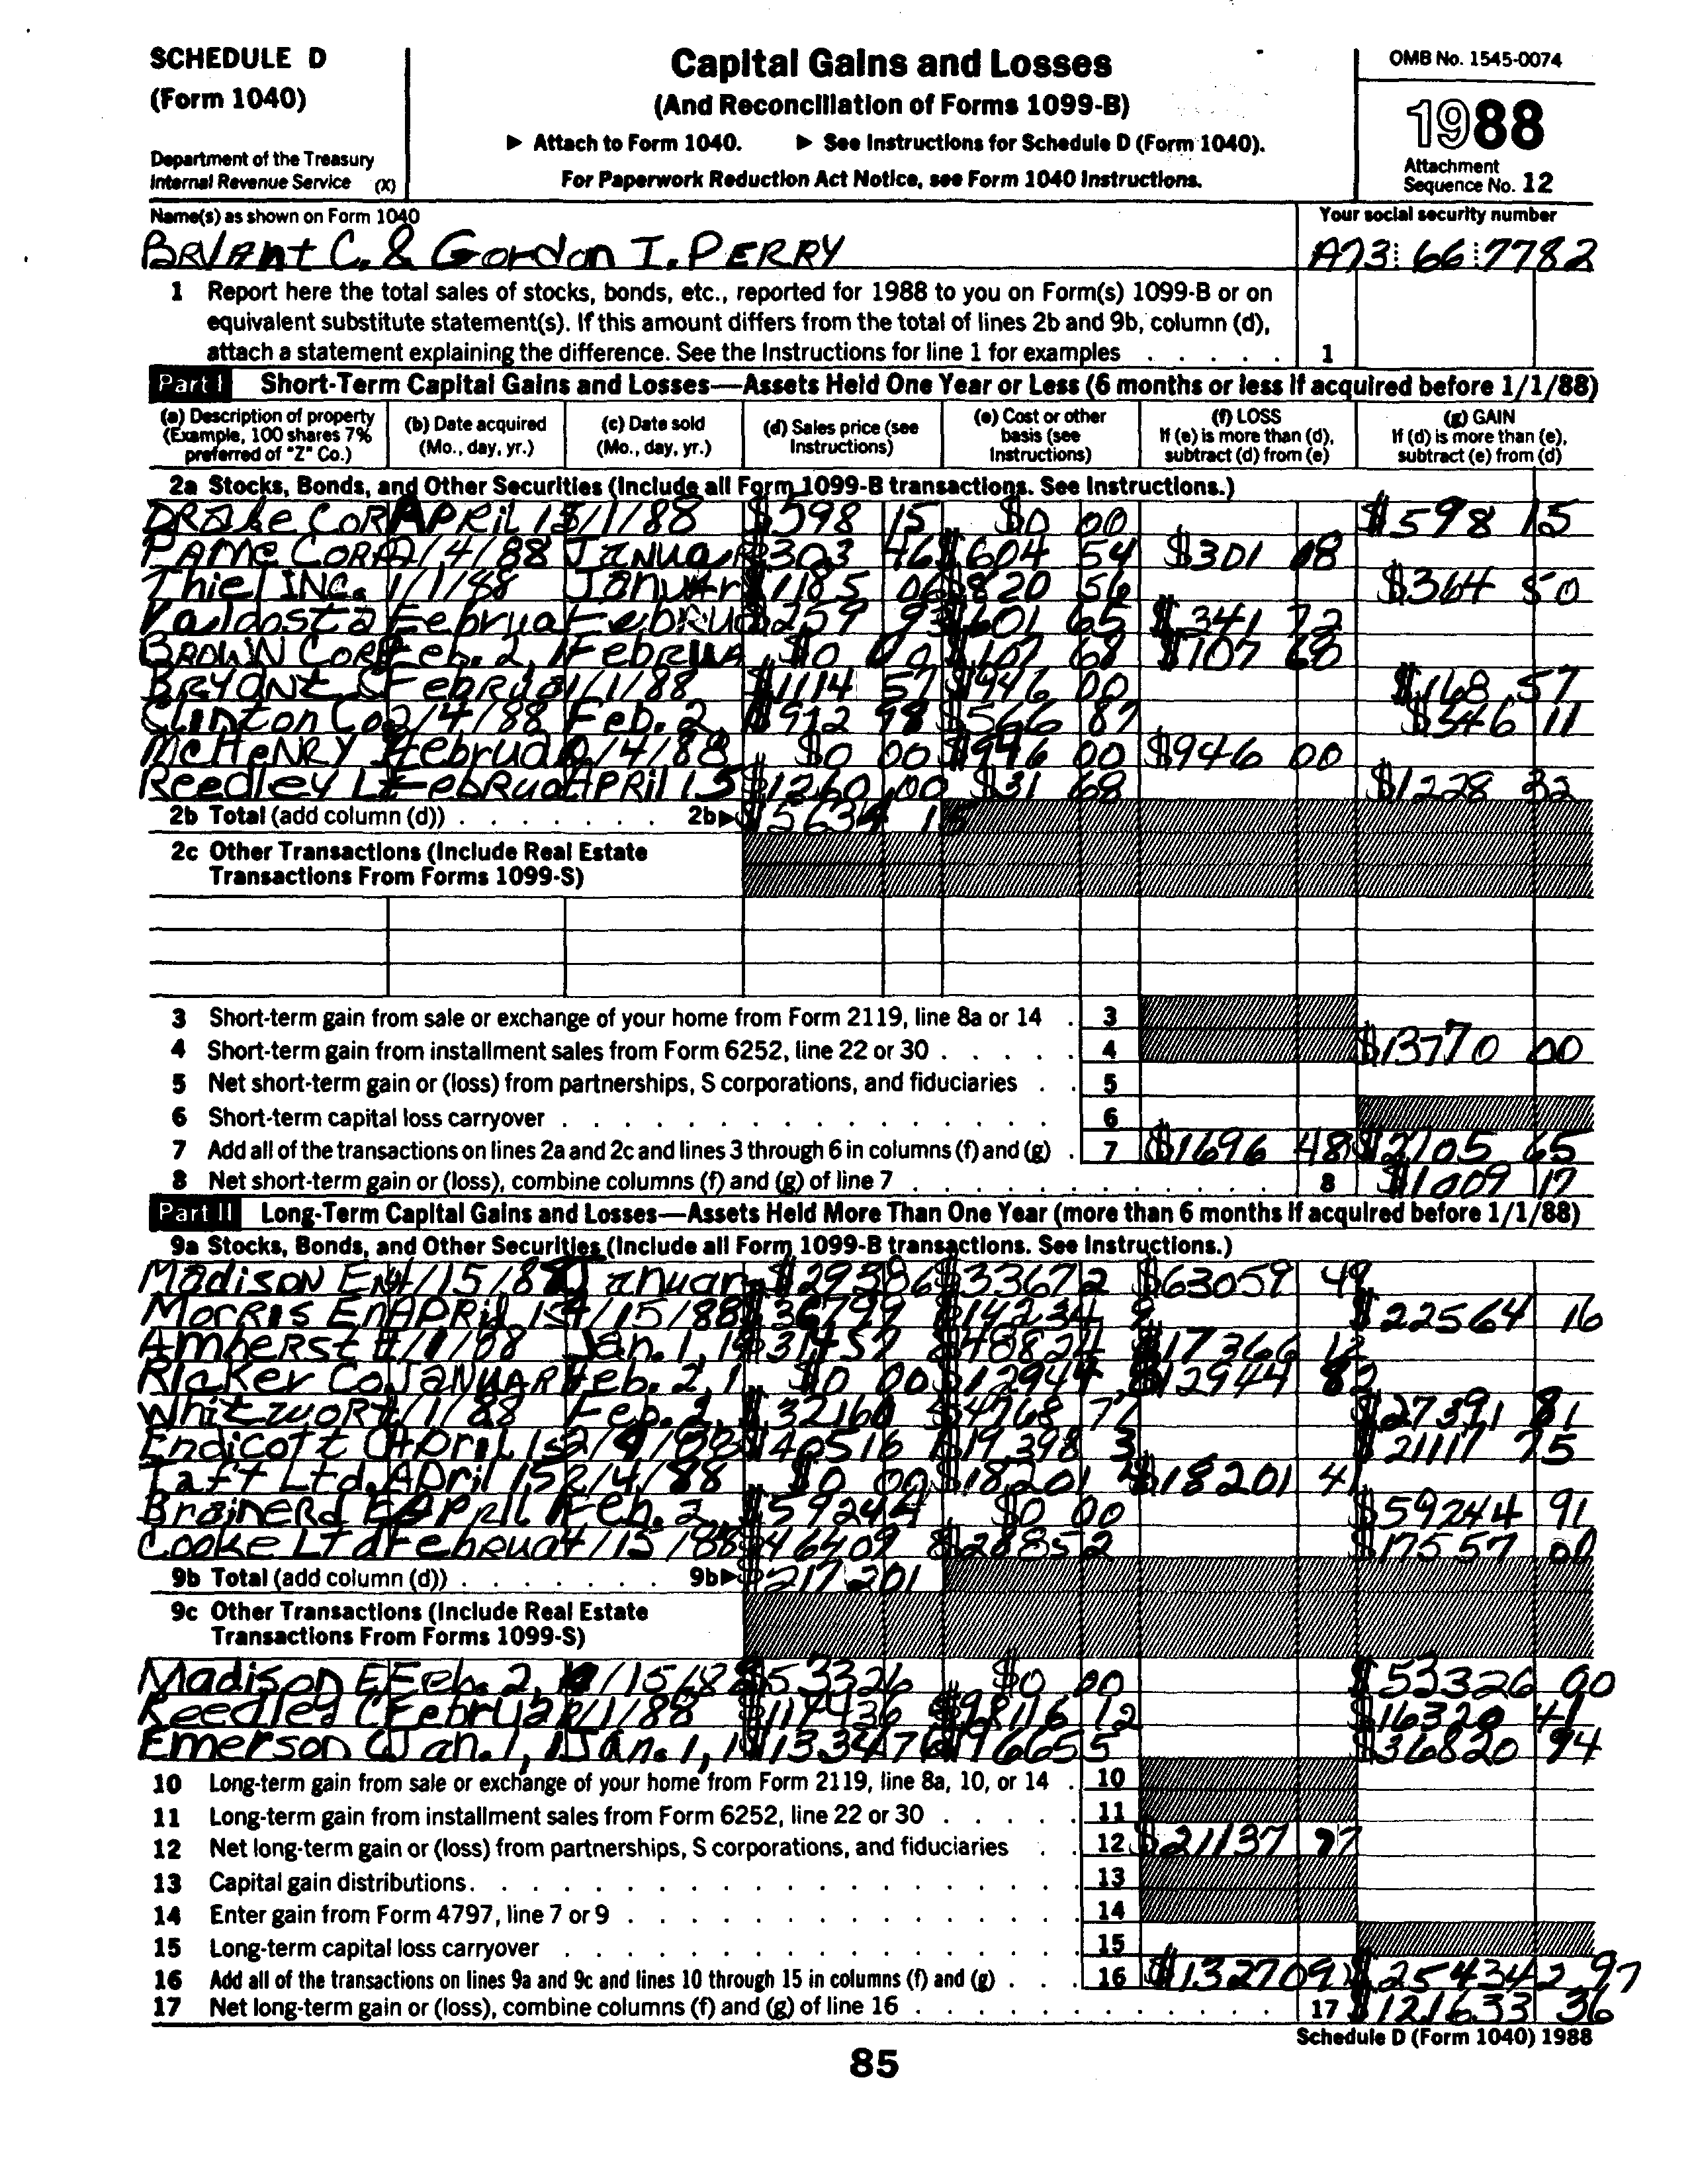 SCHEDULE D
(Form 1040)
Department of the Treasury
Internal Revenue Service (X)
Capital Gains and Losses
(And Reconciliation of Forms 1099-B)
▶ Attach to Form 1040. ▶ See Instructions for Schedule D (Form 1040).
For Paperwork Reduction Act Notice, see Form 1040 Instructions.
OMB No. 1545-0074
1988
Attachment
Sequence No. 12
Name(s) as shown on Form 1040
Your social security number
C. & Gordon I. PERRY
A73 66 7782
1 Report here the total sales of stocks, bonds, etc., reported for 1988 to you on Form(s) 1099-B or on
equivalent substitute statement(s). If this amount differs from the total of lines 2b and 9b, column (d),
attach a statement explaining the difference. See the Instructions for line 1 for examples . . . . . 1
Part I Short-Term Capital Gains and Losses—Assets Held One Year or Less (6 months or less if acquired before 1/1/88)
(a) Description of property (Example, 100 shares 7% preferred of "Z" Co.)
(b) Date acquired (Mo., day, yr.)
(c) Date sold (Mo., day, yr.)
(d) Sales price (see Instructions)
(e) Cost or other basis (see Instructions)
(f) LOSS If (e) is more than (d), subtract (d) from (e)
(g) GAIN If (d) is more than (e), subtract (e) from (d)
2a Stocks, Bonds, and Other Securities (Include all Form 1099-B transactions. See Instructions.)
DRAKE COR APRIL 15 1/1/88 $598 15 $0 00 $598 15
PAME CORP 2/4/88 JANUAR $303 46 $604 54 $301 08
Thiel INC. 1/1/88 JANUAR $1185 06 $820 56 $364 50
Valdosta Februa FebRUa $259 93 $601 65 $341 72
BROWN CORP Feb. 2, 1 FebRUA $0 00 $107 68 $107 68
BRYANt C FebRUa 1/1/88 $1114 57 $946 00 $168 57
Clinton Co 2/4/88 Feb. 2, $912 98 $566 87 $346 11
McHeNRY Februa 2/4/88 $0 00 $946 00 $946 00
Reedley L FebRUa APRIL 15 $1260 00 $31 68 $1228 32
2b Total (add column (d)) . . . . . . . 2b▶ $5634 15
2c Other Transactions (Include Real Estate
Transactions From Forms 1099-S)
3 Short-term gain from sale or exchange of your home from Form 2119, line 8a or 14 . 3
4 Short-term gain from installment sales from Form 6252, line 22 or 30 . . . . . 4 $13770 00
5 Net short-term gain or (loss) from partnerships, S corporations, and fiduciaries . . 5
6 Short-term capital loss carryover . . . . . . . . . . . . . . . 6
7 Add all of the transactions on lines 2a and 2c and lines 3 through 6 in columns (f) and (g) . 7 $1696 48 $2705 65
8 Net short-term gain or (loss), combine columns (f) and (g) of line 7 . . . . . . . . . . . . . 8 $1009 17
Part II Long-Term Capital Gains and Losses—Assets Held More Than One Year (more than 6 months if acquired before 1/1/88)
9a Stocks, Bonds, and Other Securities (Include all Form 1099-B transactions. See Instructions.)
Madison En 4/15/88 Januar $29386 $33672 $63059 49
MorRIS En APRIL 15 4/15/88 $36799 $14234 $22564 16
AmheRSt 1/1/88 Jan. 1, 19 $31457 $48824 $17366 12
Ricker Co. JANUAR Feb. 2, 1 $0 00 $12944 $12944 82
WhitwoRt 1/1/88 Feb. 2, $32160 $4768 77 $27391 81
Endicott C April 15 2/4/88 $40516 $19398 3 $21117 75
Taft Ltd. April 15 2/4/88 $0 00 $18201 4 $18201 41
BraineRd E APRIL 1 Feb. 2, $59244 $0 00 $59244 91
Cooke Ltd Februa 4/15/88 $46409 8 $28852 $17557 00
9b Total (add column (d)) . . . . . . . 9b▶ $217201
9c Other Transactions (Include Real Estate
Transactions From Forms 1099-S)
Madison E Feb. 2, 4/15/88 $53326 $0 00 $53326 00
Reedley C Februa 1/1/88 $114436 $98116 12 $16320 41
Emerson C Jan. 1, 1 Jan. 1, 1 $133476 $96655 $36820 94
10 Long-term gain from sale or exchange of your home from Form 2119, line 8a, 10, or 14 . 10
11 Long-term gain from installment sales from Form 6252, line 22 or 30 . . . . . 11
12 Net long-term gain or (loss) from partnerships, S corporations, and fiduciaries . . 12 $21137 97
13 Capital gain distributions . . . . . . . . . . . . . . . . . . 13
14 Enter gain from Form 4797, line 7 or 9 . . . . . . . . . . . . . 14
15 Long-term capital loss carryover . . . . . . . . . . . . . . . 15
16 Add all of the transactions on lines 9a and 9c and lines 10 through 15 in columns (f) and (g) . . . 16 $132709 $254342 97
17 Net long-term gain or (loss), combine columns (f) and (g) of line 16 . . . . . . . . . . . . . 17 $121633 36
Schedule D (Form 1040) 1988
85